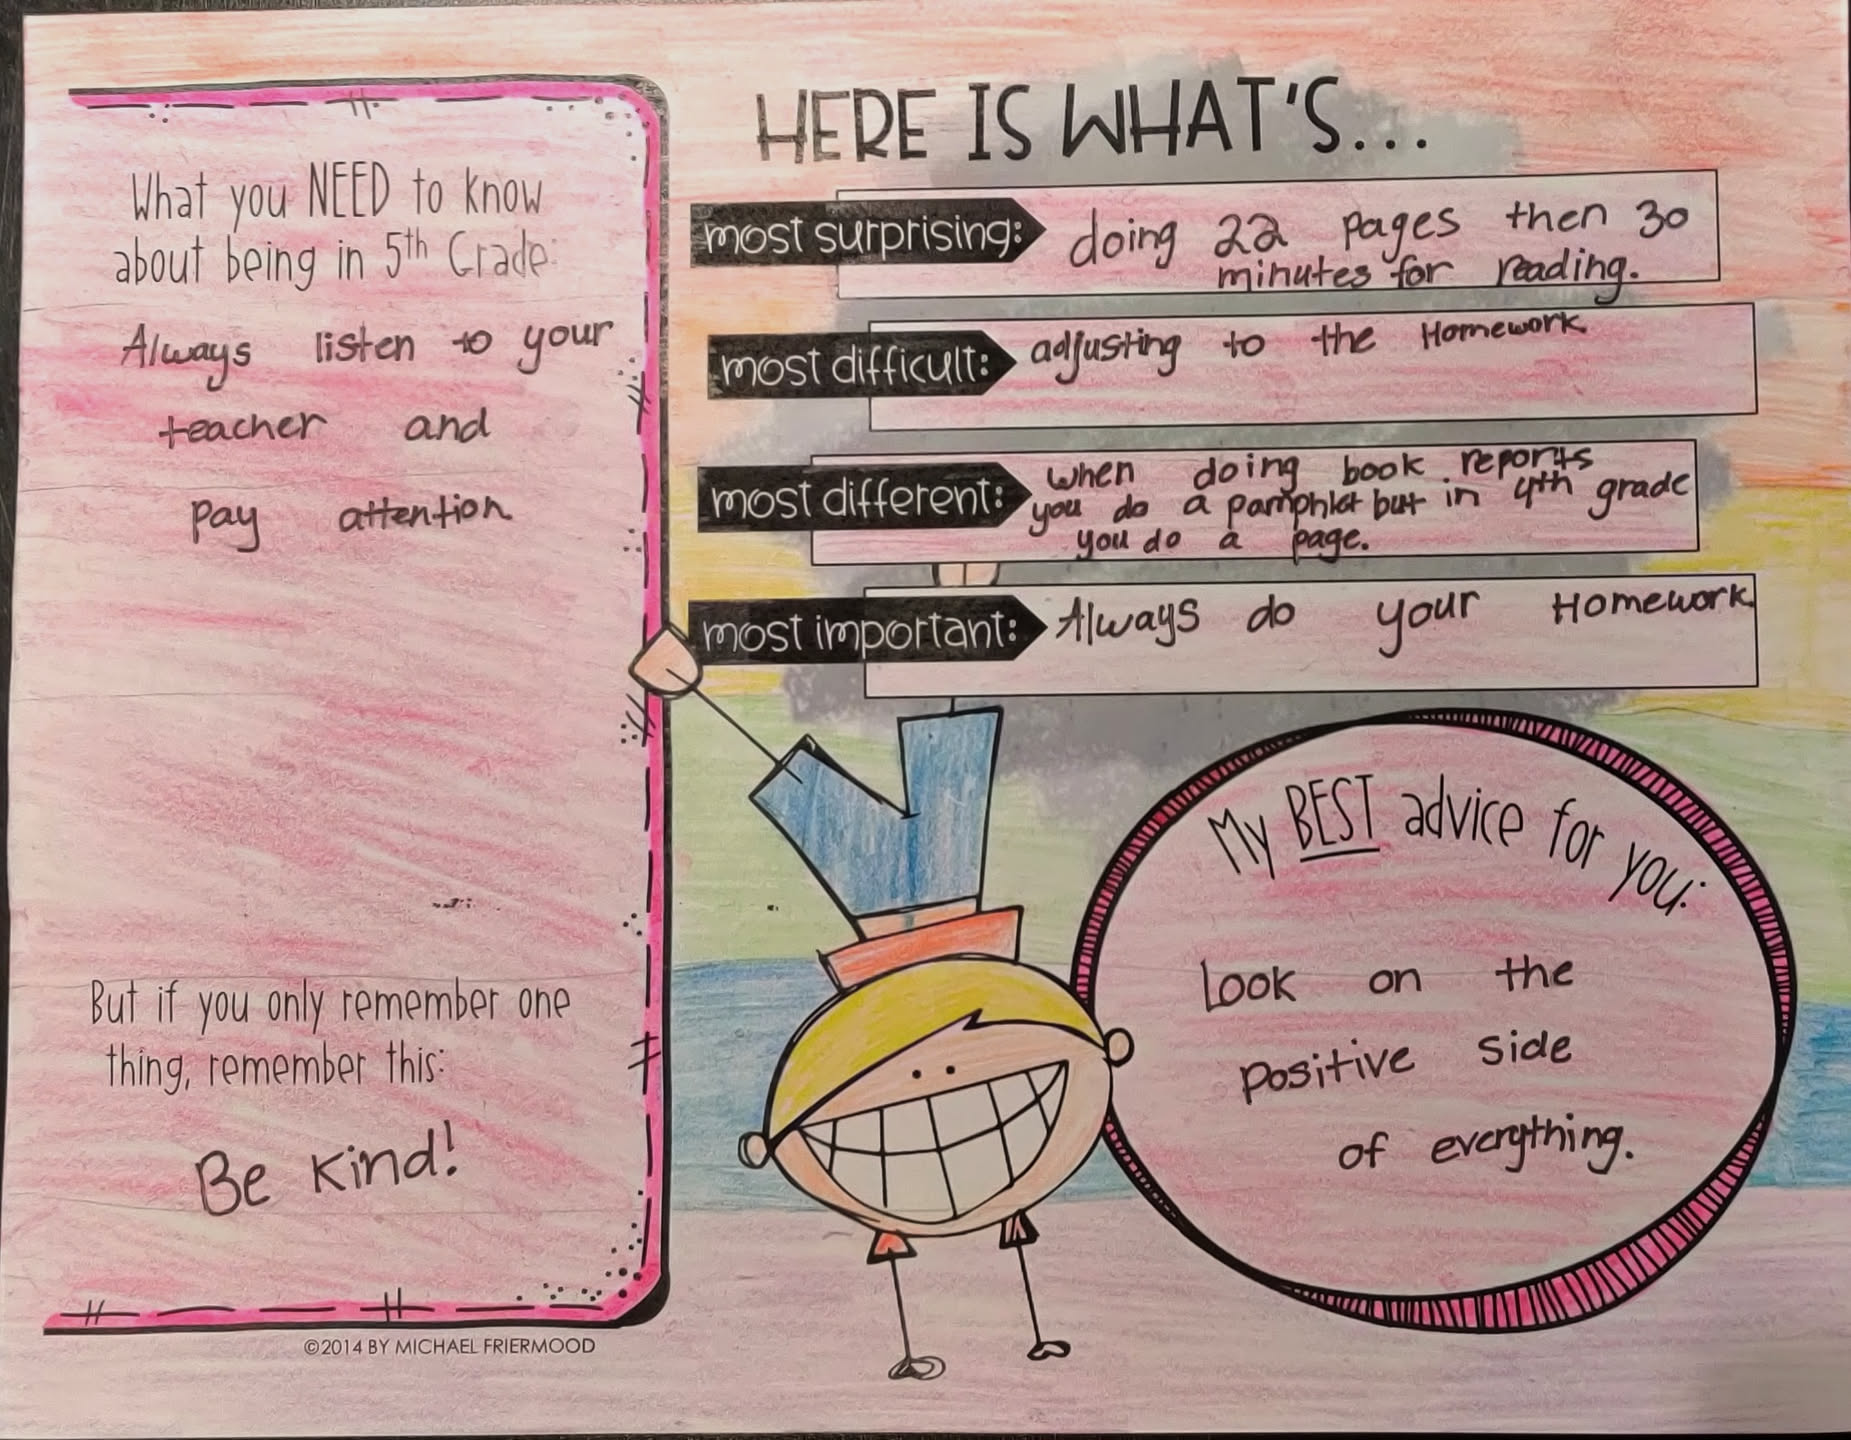 What you NEED to know
about being in 5th Grade:
Always listen to your
teacher and
pay attention
But if you only remember one
thing, remember this:
Be Kind!
©2014 BY MICHAEL FRIERMOOD
HERE IS WHAT'S...
most surprising: doing 22 pages then 30
minutes for reading.
most difficult: adjusting to the Homework
most different: when doing book reports
you do a pamphlet but in 4th grade
you do a page.
most important: Always do your Homework
My BEST advice for you:
Look on the
positive side
of everything.